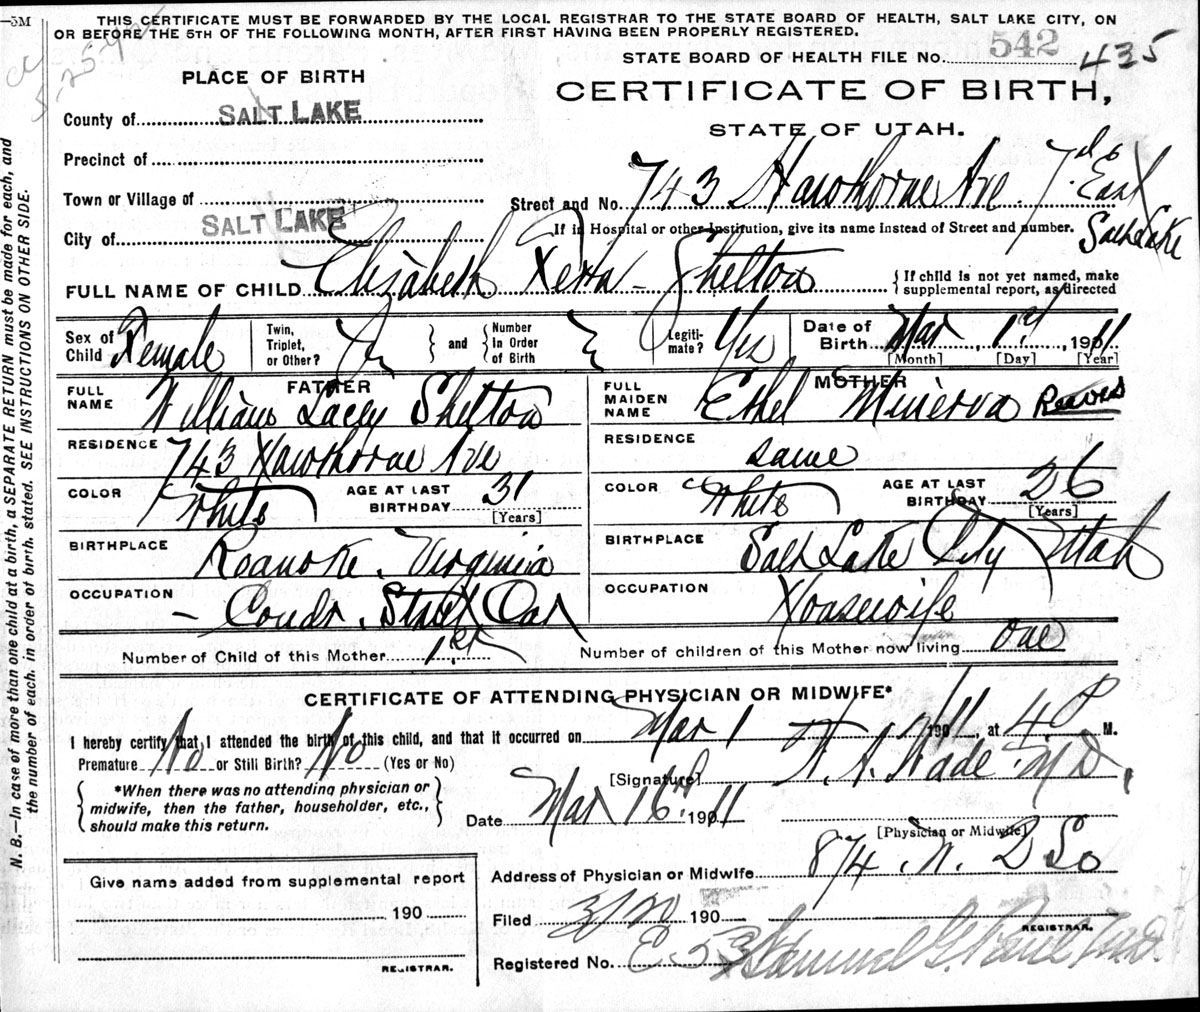 —5M
THIS CERTIFICATE MUST BE FORWARDED BY THE LOCAL REGISTRAR TO THE STATE BOARD OF HEALTH, SALT LAKE CITY, ON
OR BEFORE THE 5TH OF THE FOLLOWING MONTH, AFTER FIRST HAVING BEEN PROPERLY REGISTERED.
STATE BOARD OF HEALTH FILE No. 542 435
PLACE OF BIRTH
CERTIFICATE OF BIRTH,
STATE OF UTAH.
County of SALT LAKE
Precinct of
Town or Village of
City of SALT LAKE
Street and No. 743 Hawthorne Ave. 7th East
Salt Lake
If in Hospital or other Institution, give its name instead of Street and number.
FULL NAME OF CHILD Elizabeth Shelton
{If child is not yet named, make
supplemental report, as directed
Sex of Child Female
Twin, Triplet, or Other?
and
Number In Order of Birth
Legiti-mate? Yes
Date of Birth Mar 1st, 1911
[Month] [Day] [Year]
FATHER
FULL NAME William Lacey Shelton
MOTHER
FULL MAIDEN NAME Ethel Minerva Reeves
RESIDENCE 743 Hawthorne Ave
RESIDENCE same
COLOR White AGE AT LAST BIRTHDAY 31 [Years]
COLOR White AGE AT LAST BIRTHDAY 26 [Years]
BIRTHPLACE Roanoke, Virginia
BIRTHPLACE Salt Lake City Utah
OCCUPATION – Condr. Street Car
OCCUPATION Housewife
Number of Child of this Mother 1st
Number of children of this Mother now living one
CERTIFICATE OF ATTENDING PHYSICIAN OR MIDWIFE*
I hereby certify that I attended the birth of this child, and that it occurred on Mar 1 1911, at 4 P M.
Premature No or Still Birth? No (Yes or No)
[Signature] Wade M.D.
{*When there was no attending physician or
midwife, then the father, householder, etc.,
should make this return.}
Date Mar 16th 1911
[Physician or Midwife]
Address of Physician or Midwife 874 So
Give name added from supplemental report
190
REGISTRAR.
Filed 3/20 190
REGISTRAR.
Registered No. E 533 Samuel G. Paul M.D.
N. B.—In case of more than one child at a birth, a SEPARATE RETURN must be made for each, and
the number of each, in order of birth, stated. SEE INSTRUCTIONS ON OTHER SIDE.